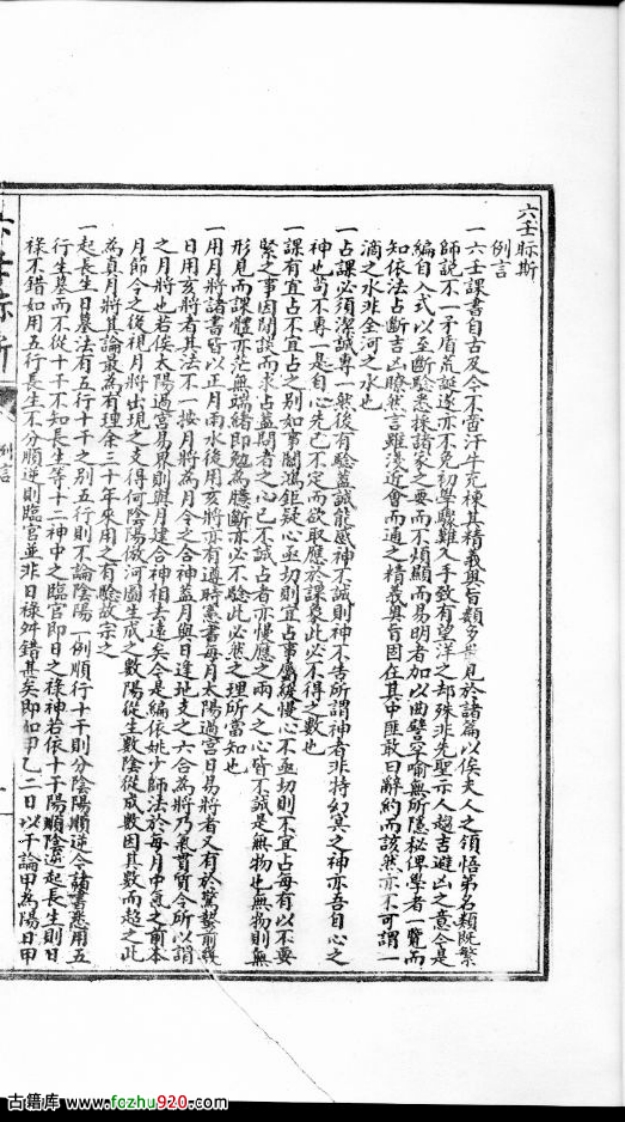 六壬眎斯
例言
一六壬課書自古及今不啻汗牛充棟其精義奧旨類多散見於諸篇以俟夫人之領悟第名類既繁
師說不一矛盾荒誕遂亦不免初學驟難入手致有望洋之却殊非先聖示人趨吉避凶之意今是
編自入式以至斷驗悉採諸家之要而不煩顯而易明者加以曲譬罕喻無所隱秘俾學者一覽而
知依法占斷吉凶瞭然言雖淺近會而通之精義奧旨固在其中匪敢曰辭約而該然亦不可謂一
滴之水非全河之水也
一占課必須潔誠專一然後有驗蓋誠能感神不誠則神不告所謂神者非特幻冥之神亦吾自心之
神也苟不專一是自心先已不定而欲取應於課象此必不得之數也
一課有宜占不宜占之別如事關鴻鉅疑心亟切則宜占事屬緩慢心不亟切則不宜占每有以不要
緊之事因閒談而求占蓋問者之心已不誠占者亦慢應之兩人之心皆不誠是無物也無物則無
形見而課體亦茫無端緒即勉為臆斷亦必不驗此必然之理所當知也
一用月將諸書皆以正月雨水後用亥將亦有遵時憲書每月太陽過宮日易將者又有於驚蟄前後
日用亥將者其法不一按月將為月令之合神蓋月與日逢地支之六合為將乃氣貫質合所以謂
之月將也若俟太陽過宮易界則與月建合神相去遠矣今是編依姚少師法於每月中氣之前本
月節令之後視月將出現之支得何陰陽倣河圖生成之數陽從生數陰從成數因其數而超之此
為真月將其論最為有理余三十年來用之有驗故宗之
一起長生日墓法有五行十干之別五行則不論陰陽一例順行十干則分陰陽順逆今諸書悉用五
行生墓而不從十干不知長生等十二神中之臨官即日之祿神若依十干陽順陰逆起長生則日
祿不錯如用五行長生不分順逆則臨官並非日祿舛錯甚矣即如甲乙二日以干論甲為陽日甲
例言
一
古籍库 www.fozhu920.com